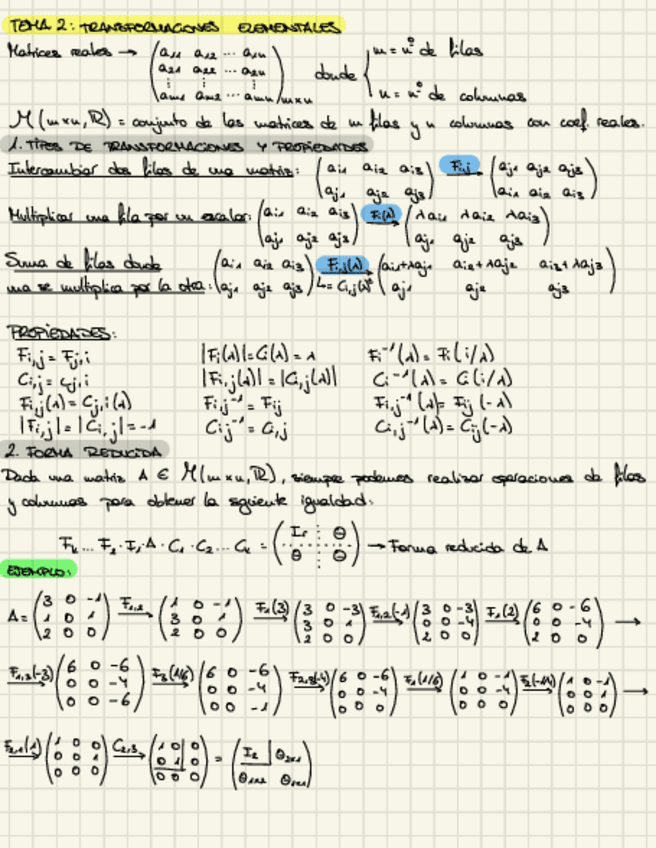 TEMA 2: TRANSFORMACIONES ELEMENTALES
Matrices reales → (a11 a12 ... a1n
a21 a22 ... a2n
⋮ ⋮ ⋮
am1 am2 ... amn)mxn donde { m = nº de filas
n = nº de columnas
M(mxn, ℝ) = conjunto de las matrices de m filas y n columnas con coef. reales.
1. TIPOS DE TRANSFORMACIONES Y PROPIEDADES
Intercambiar dos filas de una matriz: (ai1 ai2 ai3 / aj1 aj2 aj3) Fi,j → (aj1 aj2 aj3 / ai1 ai2 ai3)
Multiplicar una fila por un escalar: (ai1 ai2 ai3 / aj1 aj2 aj3) Fi(λ) → (λai1 λai2 λai3 / aj1 aj2 aj3)
Suma de filas donde (ai1 ai2 ai3 Fi,j(λ) → (ai1+λaj1 ai2+λaj2 ai3+λaj3
una se multiplica por la otra: aj1 aj2 aj3) aj1 aj2 aj3)
PROPIEDADES:
Fi,j = Fj,i |Fi(λ)| = Ci(λ) = λ Fi⁻¹(λ) = Fi(1/λ)
Ci,j = Cj,i |Fi,j(λ)| = |Ci,j(λ)| Ci⁻¹(λ) = Ci(1/λ)
Fi,j(λ) = Cj,i(λ) Fi,j⁻¹ = Fij Fi,j⁻¹(λ) = Fij(-λ)
|Fi,j| = |Ci,j| = -1 Cij⁻¹ = Ci,j Ci,j⁻¹(λ) = Cij(-λ)
2. FORMA REDUCIDA
Dada una matriz A ∈ M(mxn, ℝ), siempre podemos realizar operaciones de filas
y columnas para obtener la siguiente igualdad:
Fk ... F2 · F1 · A · C1 · C2 ... Ck = (Ir Θ / Θ Θ) → Forma reducida de A
EJEMPLO:
A = (3 0 -1 / 1 0 1 / 2 0 0) F1,2 → (1 0 -1 / 3 0 1 / 2 0 0) F1(3) → (3 0 -3 / 3 0 1 / 2 0 0) F1,2(-1) → (3 0 -3 / 0 0 -4 / 2 0 0) F1(2) → (6 0 -6 / 0 0 -4 / 2 0 0) →
F1,3(-3) → (6 0 -6 / 0 0 -4 / 0 0 -6) F3(1/6) → (6 0 -6 / 0 0 -4 / 0 0 -1) F2,3(-4) → (6 0 -6 / 0 0 -4 / 0 0 0) F1(1/6) → (1 0 -1 / 0 0 -4 / 0 0 0) F2(-1/4) → (1 0 -1 / 0 0 1 / 0 0 0) →
F2,1(1) → (1 0 0 / 0 0 1 / 0 0 0) C2,3 → (1 0 0 / 0 1 0 / 0 0 0) = (I2 Θ2x1 / Θ1x2 Θ1x1)